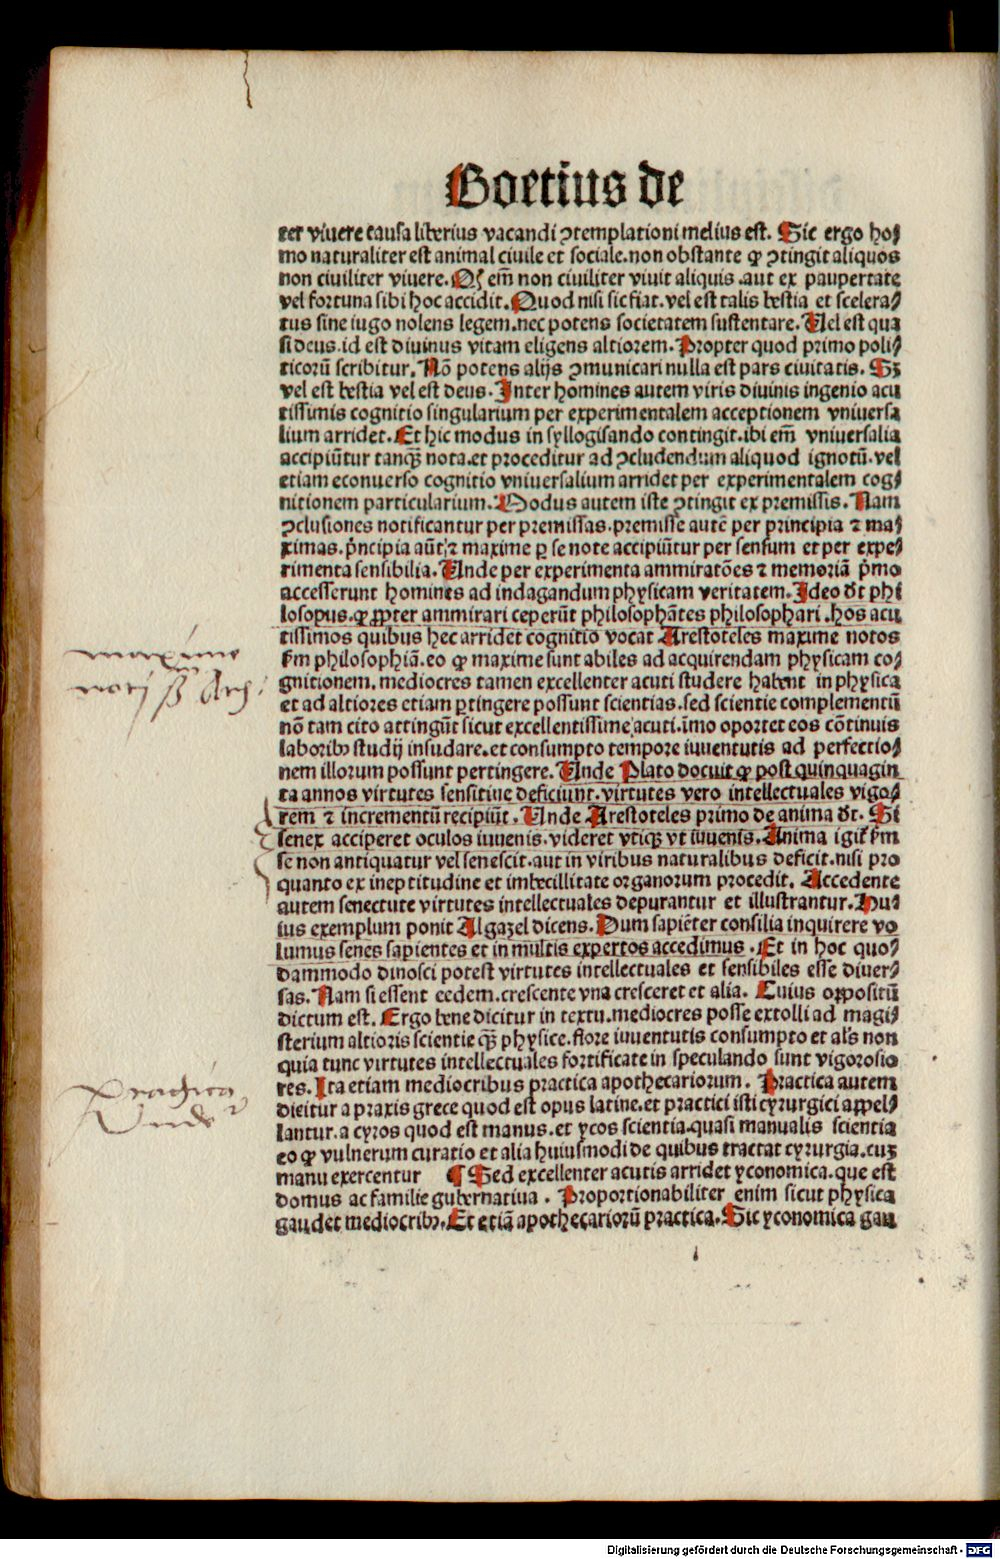 Boetius de
ter vivere causa liberius vacandi ꝯtemplationi melius est. Sic ergo ho⸗
mo naturaliter est animal civile et sociale. non obstante ꝙ ꝯtingit aliquos
non civiliter vivere. Qꝫ em̄ non civiliter vivit aliquis. aut ex paupertate
vel fortuna sibi hoc accidit. Quod nisi sic fiat. vel est talis bestia et scelera⸗
tus sine iugo nolens legem. nec potens societatem sustentare. Vel est qua
si deus. id est divinus vitam eligens altiorem. Propter quod primo poli⸗
ticorū scribitur. Nō potens alijs ꝯmunicari nulla est pars civitatis. Sꝫ
vel est bestia vel est deus. Inter homines autem viris divinis ingenio acu
tissimis cognitio singularium per experimentalem acceptionem vniversa
lium arridet. Et hic modus in syllogisando contingit. ibi em̄ vniversalia
accipiūtur tanqꝫ nota. et proceditur ad ꝯcludendum aliquod ignotū. vel
etiam econuerso cognitio vniversalium arridet per experimentalem cog⸗
nitionem particularium. Modus autem iste ꝯtingit ex premissis. Nam
ꝯclusiones notificantur per premissas. premisse autē per principia ⁊ ma⸗
ximas. p̄ncipia aūt ⁊ maxime ꝑ se note accipiūtur per sensum et per expe⸗
rimenta sensibilia. Vnde per experimenta ammiratōes ⁊ memoriā p̄mo
accesserunt homines ad indagandum physicam veritatem. Ideo dt̄ phi
losopus. ꝙ ꝓpter ammirari ceperūt philosophātes philosophari. hos acu
tissimos quibus hec arridet cognitio vocat Arestoteles maxime notos
ẜm philosophiā. eo ꝙ maxime sunt abiles ad acquirendam physicam co⸗
gnitionem. mediocres tamen excellenter acuti studere habent in physica
et ad altiores etiam ꝑtingere possunt scientias. sed scientie complementū
nō tam cito attingūt sicut excellentissime acuti. īmo oportet eos cōtinuis
laboribꝫ studij insudare. et consumpto tempore iuuentutis ad perfectio⸗
nem illorum possunt pertingere. Vnde Plato docuit ꝙ post quinquagin
ta annos virtutes sensitive deficiunt. virtutes vero intellectuales vigo⸗
rem ⁊ incrementū recipiūt. Vnde Arestoteles primo de anima dt̄. Si
senex acciperet oculos iuvenis. videret vtiqꝫ vt iuvenis. Anima igit᷑ ẜm
se non antiquatur vel senescit. aut in viribus naturalibus deficit. nisi pro
quanto ex ineptitudine et imbecillitate organorum procedit. Accedente
autem senectute virtutes intellectuales depurantur et illustrantur. Hui⸗
ius exemplum ponit Algazel dicens. Dum sapiēter consilia inquirere vo
lumus senes sapientes et in multis expertos accedimus. Et in hoc quo⸗
dammodo dinosci potest virtutes intellectuales et sensibiles esse diver⸗
sas. Nam si essent eedem. crescente vna cresceret et alia. Cuius oꝓpositū
dictum est. Ergo bene dicitur in textu. mediocres posse extolli ad magi⸗
sterium altioris scientie qꝫ physice. flore iuuentutis consumpto et al's non
quia tunc virtutes intellectuales fortificate in speculando sunt vigorosio
res. Ita etiam mediocribus practica apothecariorum. Practica autem
dicitur a praxis grece quod est opus latine. et practici isti cyrurgici appel⸗
lantur. a cyros quod est manus. et ycos scientia. quasi manualis scientia
eo ꝙ vulnerum curatio et alia huiusmodi de quibus tractat cyrurgia. cuꝫ
manu exercentur ¶ Sed excellenter acutis arridet yconomica. que est
domus ac familie gubernativa. Proportionabiliter enim sicut physica
gaudet mediocribꝫ. Et etiā apothecariorū practica. Sic yconomica gau
maxime
notj ẜm Ares:
Practica
Unde
Digitalisierung gefördert durch die Deutsche Forschungsgemeinschaft - DFG